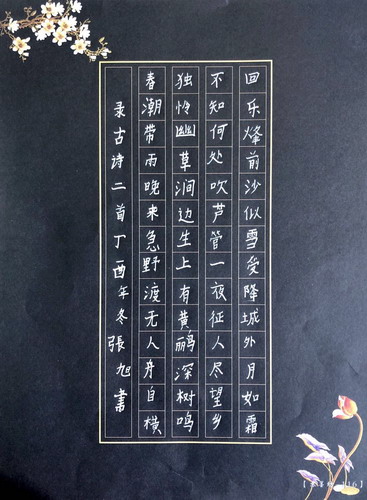 回乐烽前沙似雪受降城外月如霜
不知何处吹芦管一夜征人尽望乡
独怜幽草涧边生上有黄鹂深树鸣
春潮带雨晚来急野渡无人舟自横
录古诗二首丁酉年冬張旭書